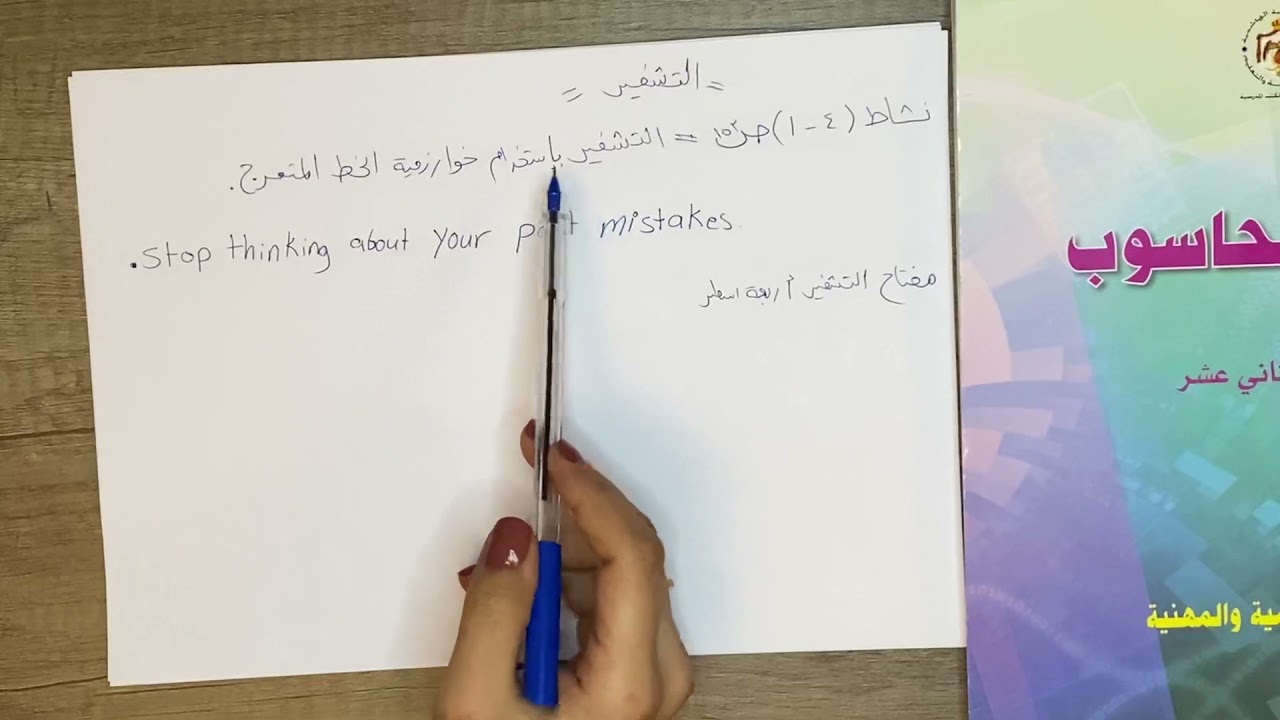 = التشفير =
نشاط (٤-١) ص ١٥٢ = التشفير باستخدام خوارزمية الخط المتعرج.
.stop thinking about your past mistakes.
مفتاح التشفير أربعة اسطر
حاسوب
اني عشر
ية والمهنية